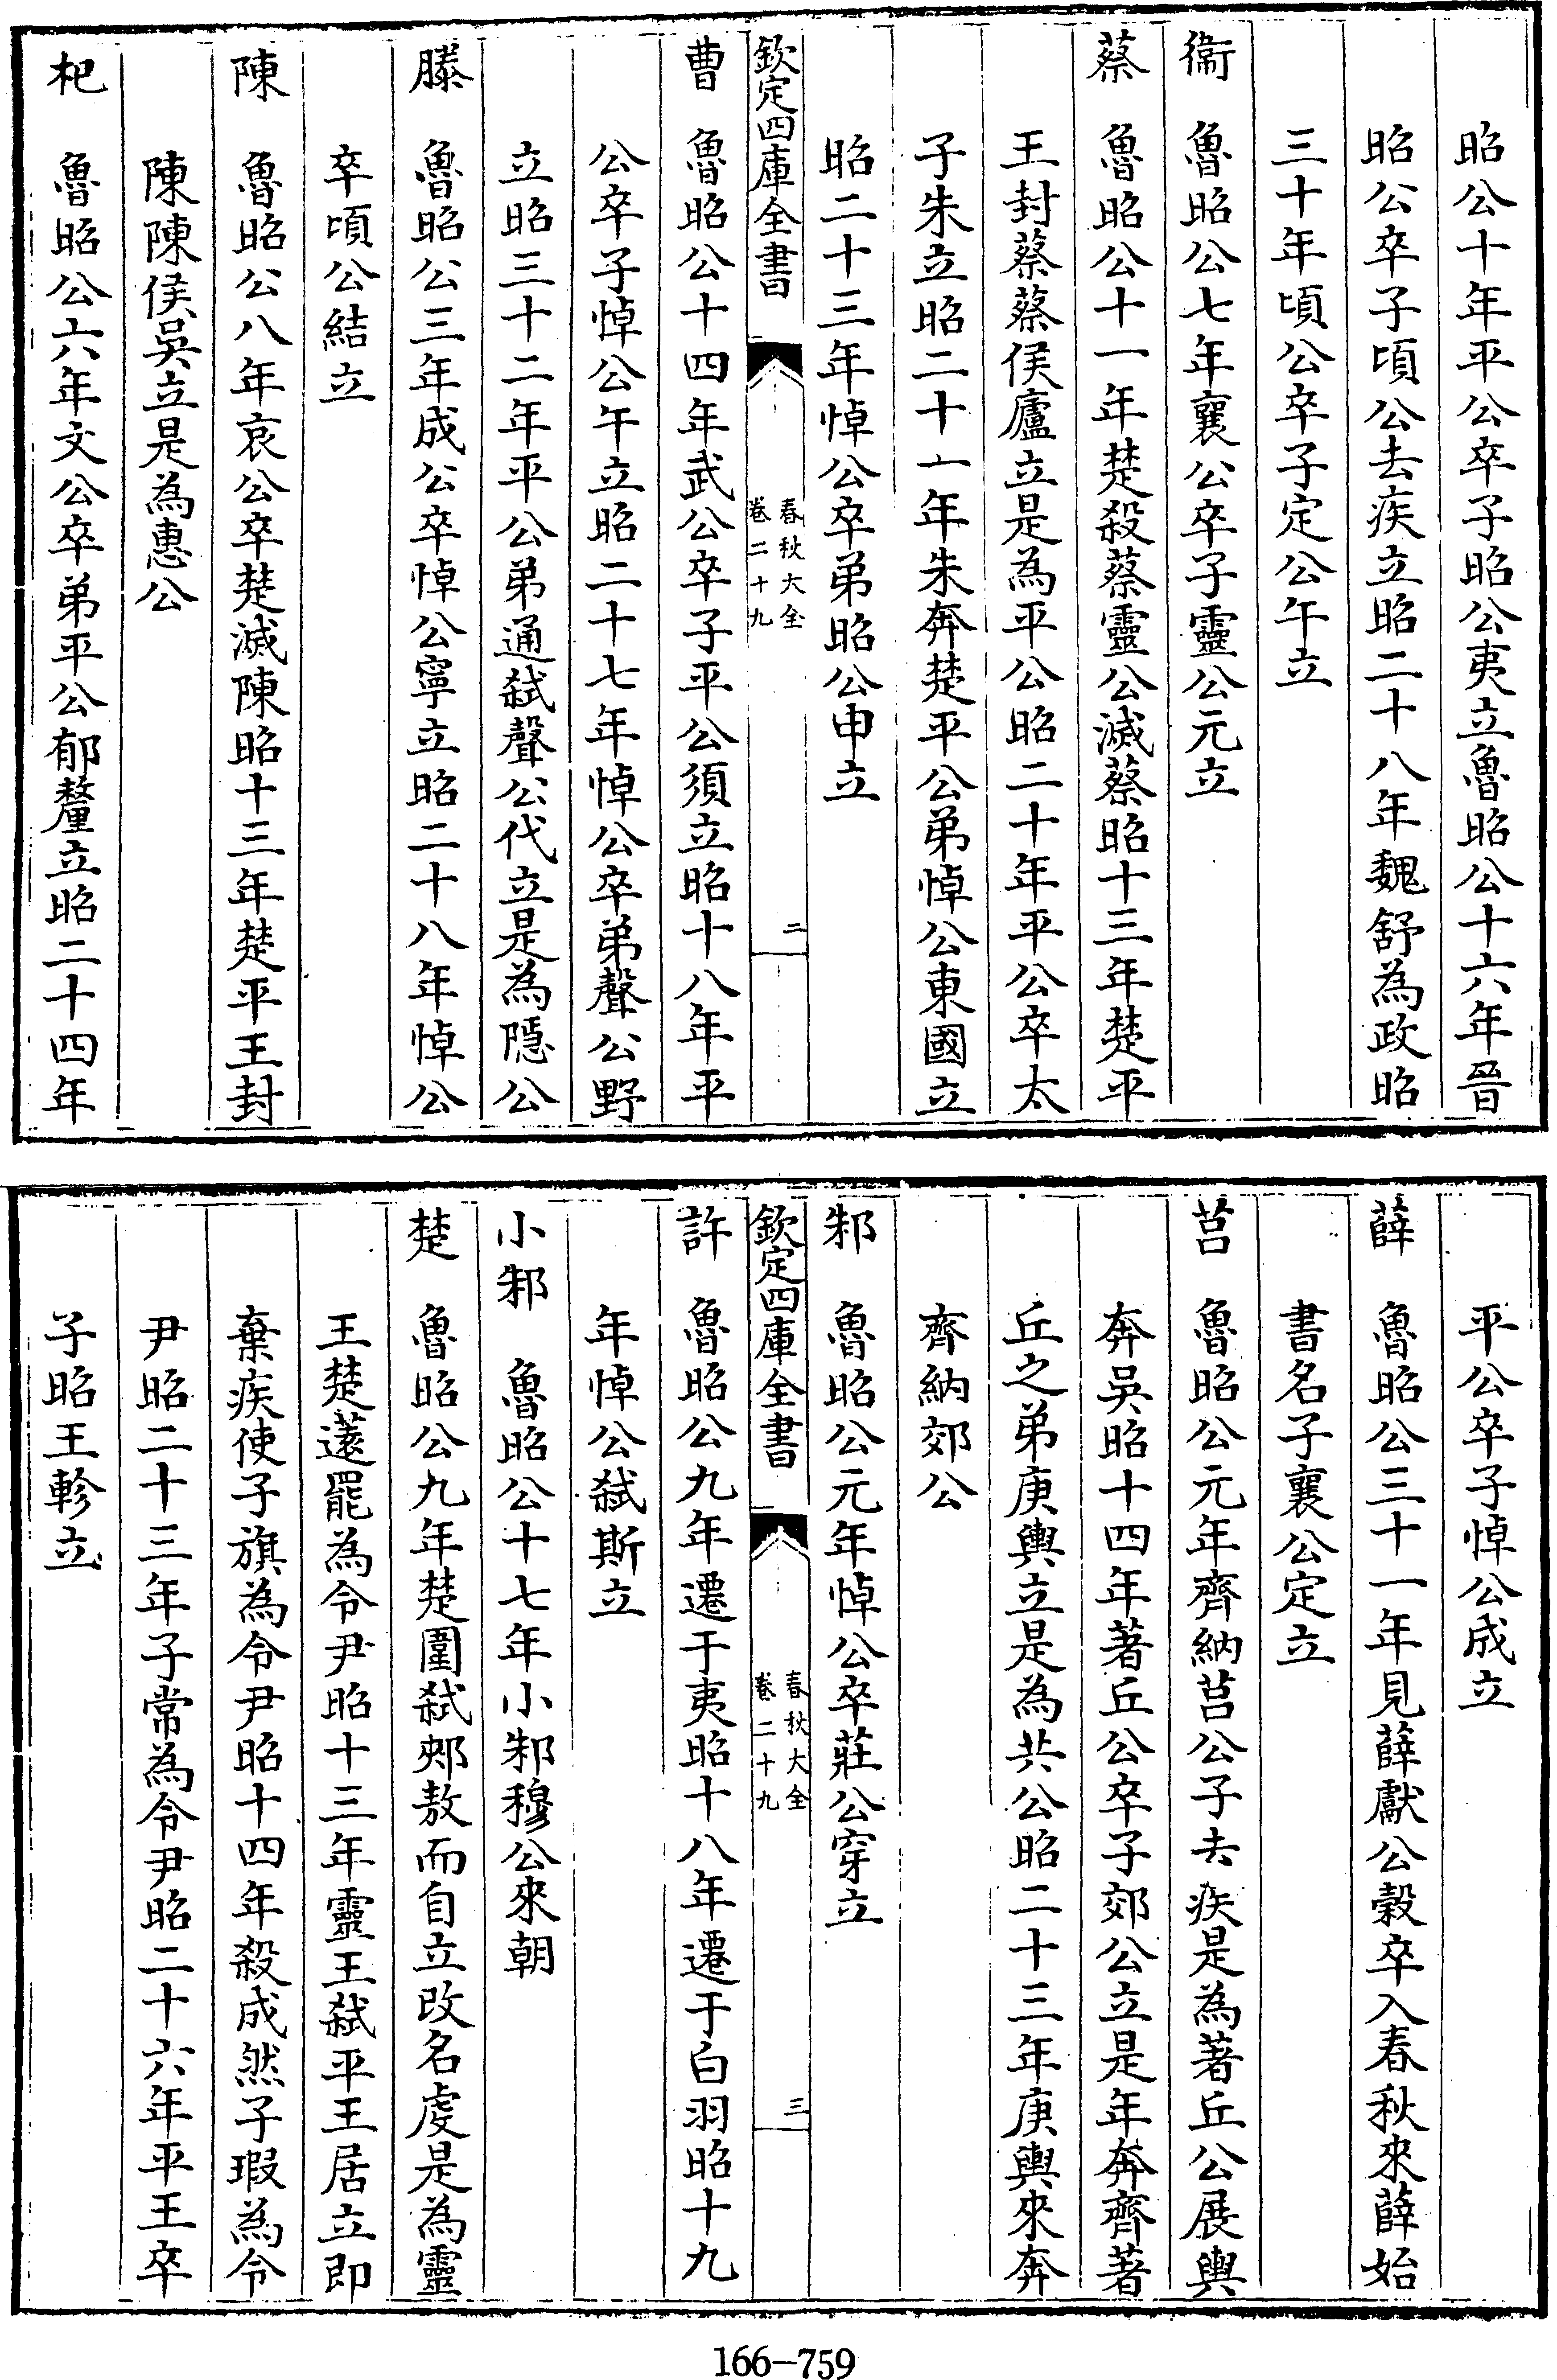 昭公十年平公卒子昭公夷立魯昭公十六年晉
昭公卒子頃公去疾立昭二十八年魏舒為政昭
三十年頃公卒子定公午立
衞　魯昭公七年襄公卒子靈公元立
蔡　魯昭公十一年楚殺蔡靈公滅蔡昭十三年楚平
王封蔡蔡侯廬立是為平公昭二十年平公卒太
子朱立昭二十一年朱奔楚平公弟悼公東國立
昭二十三年悼公卒弟昭公申立
欽定四庫全書　春秋大全卷二十九　二
曹　魯昭公十四年武公卒子平公須立昭十八年平
公卒子悼公午立昭二十七年悼公卒弟聲公野
立昭三十二年平公弟通弑聲公代立是為隱公
滕　魯昭公三年成公卒悼公寧立昭二十八年悼公
卒頃公結立
陳　魯昭公八年哀公卒楚滅陳昭十三年楚平王封
陳陳侯吳立是為惠公
杞　魯昭公六年文公卒弟平公郁釐立昭二十四年
平公卒子悼公成立
薛　魯昭公三十一年見薛獻公穀卒入春秋來薛始
書名子襄公定立
莒　魯昭公元年齊納莒公子去疾是為著丘公展輿
奔吳昭十四年著丘公卒子郊公立是年奔齊著
丘之弟庚輿立是為共公昭二十三年庚輿來奔
齊納郊公
邾　魯昭公元年悼公卒莊公穿立
欽定四庫全書　春秋大全卷二十九　三
許　魯昭公九年遷于夷昭十八年遷于白羽昭十九
年悼公弑斯立
小邾　魯昭公十七年小邾穆公來朝
楚　魯昭公九年楚圍弑郟敖而自立改名虔是為靈
王楚薳罷為令尹昭十三年靈王弑平王居立即
棄疾使子旗為令尹昭十四年殺成然子瑕為令
尹昭二十三年子常為令尹昭二十六年平王卒
子昭王軫立
166-759